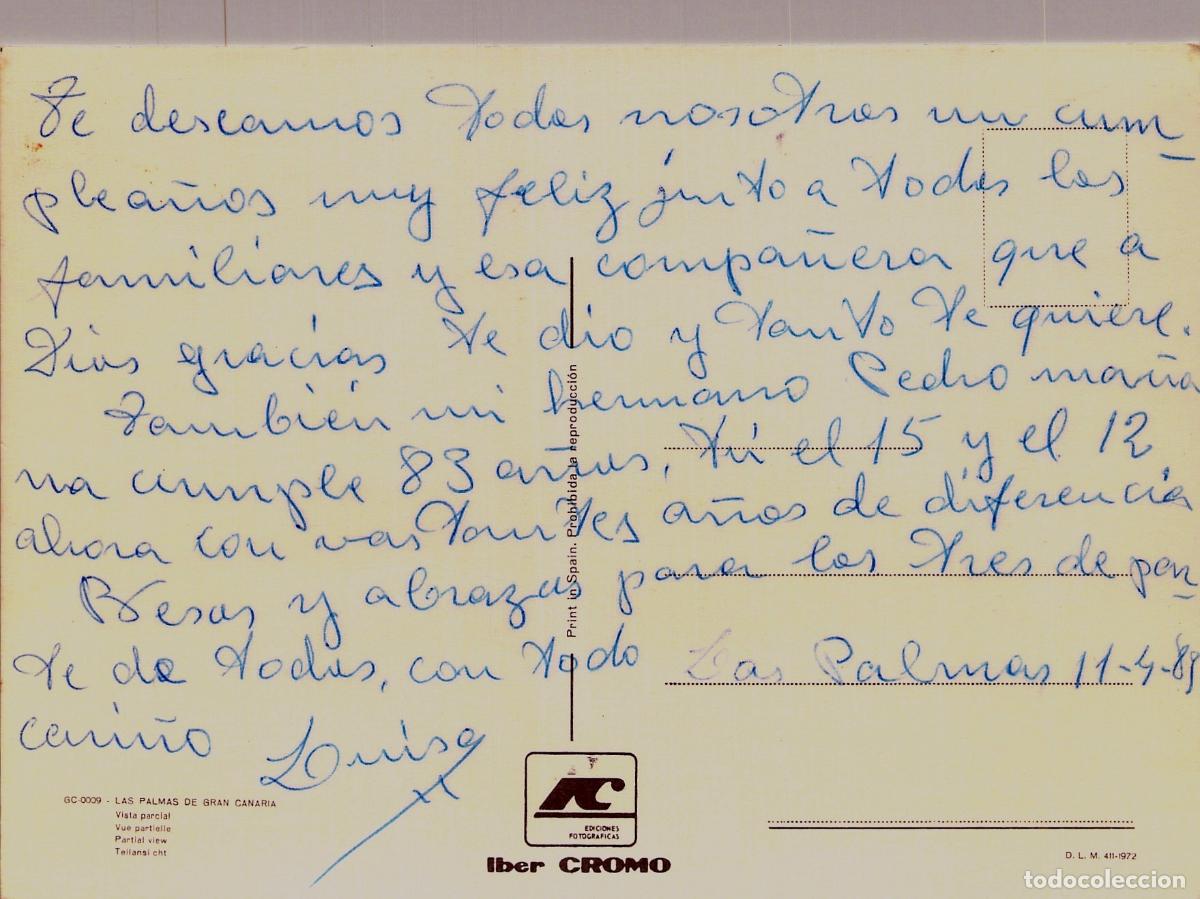 Te deseamos todos nosotros un cum-
pleaños muy feliz junto a todos los
familiares y esa compañera que a
Dios gracias te dio y tanto te quiere.
También mi hermano Pedro maña
na cumple 83 años, tú el 15 y el 12
ahora con vastantes años de diferencia
Besos y abrazos para los tres de par-
te de todos, con todo
cariño Luisa
Las Palmas 11-4-89
Print in Spain. Prohibida la reproducción
GC-0009 - LAS PALMAS DE GRAN CANARIA
Vista parcial
Vue partielle
Partial view
Teilansicht
EDICIONES
FOTOGRAFICAS
Iber CROMO
D. L. M. 411-1972
todocoleccion